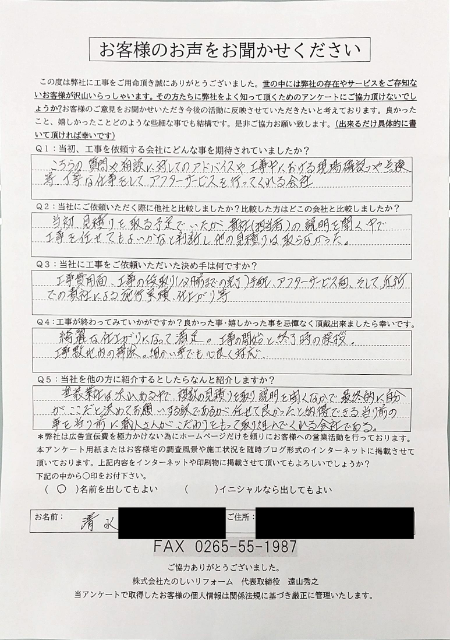 お客様のお声をお聞かせください
この度は弊社に工事をご用命頂き誠にありがとうございました。世の中には弊社の存在やサービスをご存知ないお客様が沢山いらっしゃいます。その方たちに弊社をよく知って頂くためのアンケートにご協力頂けないでしょうか?お客様のご意見をお聞かせいただき今後の活動に反映させていただきたいと考えております。良かったこと、嬉しかったことどのような些細な事でも結構です。是非ご協力お願い致します。(出来るだけ具体的に書いて頂ければ幸いです)
Q1:当初、工事を依頼する会社にどんな事を期待されていましたか?
こちらの質問や相談に対してのアドバイスや工事中における現場確認や点検
等、丁寧な仕事をして、アフターサービスを行ってくれる会社
Q2:当社にご依頼いただく際に他社と比較しましたか?比較した方はどこの会社と比較しましたか?
当初、見積りを取る予定でいたが、貴社(担当者)の説明を聞く中で
工事を任せてもよいかなと判断し他の見積りは取らなかった。
Q3:当社に工事をご依頼いただいた決め手は何ですか?
工事費用面、工事の段取り、アフターサービス面、そして近所
での貴社による施行実績、仕上がり等
Q4:工事が終わってみていかがですか?良かった事・嬉しかった事を忌憚なく頂戴出来ましたら幸いです。
綺麗な仕上がりになって満足。工事の開始と終了時の挨拶。
工事報告的の確認。細かい事でも心良く対応
Q5:当社を他の方に紹介するとしたらなんと紹介しますか?
塗装業社は沢山あるが、複数の見積りを取り説明を聞くなかで最終的に自分
がここだと決めてお願いする訳であるが任せて良かったと納得できる当り前の
事を当り前に職人さんがこだわりをもって取り組んでくれる会社である。
*弊社は広告宣伝費を極力かけない為にホームページだけを頼りにお客様への営業活動を行っております。
本アンケート用紙またはお客様宅の調査風景や施工状況を随時ブログ形式のインターネットに掲載させて頂いております。上記内容をインターネットや印刷物に掲載させて頂いてもよろしいでしょうか?
下記の中から○印をお付下さい。
( ○ )名前を出してもよい ( )イニシャルなら出してもよい
お名前: 清水 ご住所:
FAX 0265-55-1987
ご協力ありがとうございました。
株式会社たのしいリフォーム 代表取締役 遠山秀之
当アンケートで取得したお客様の個人情報は関係法規に基づき厳正に管理いたします。